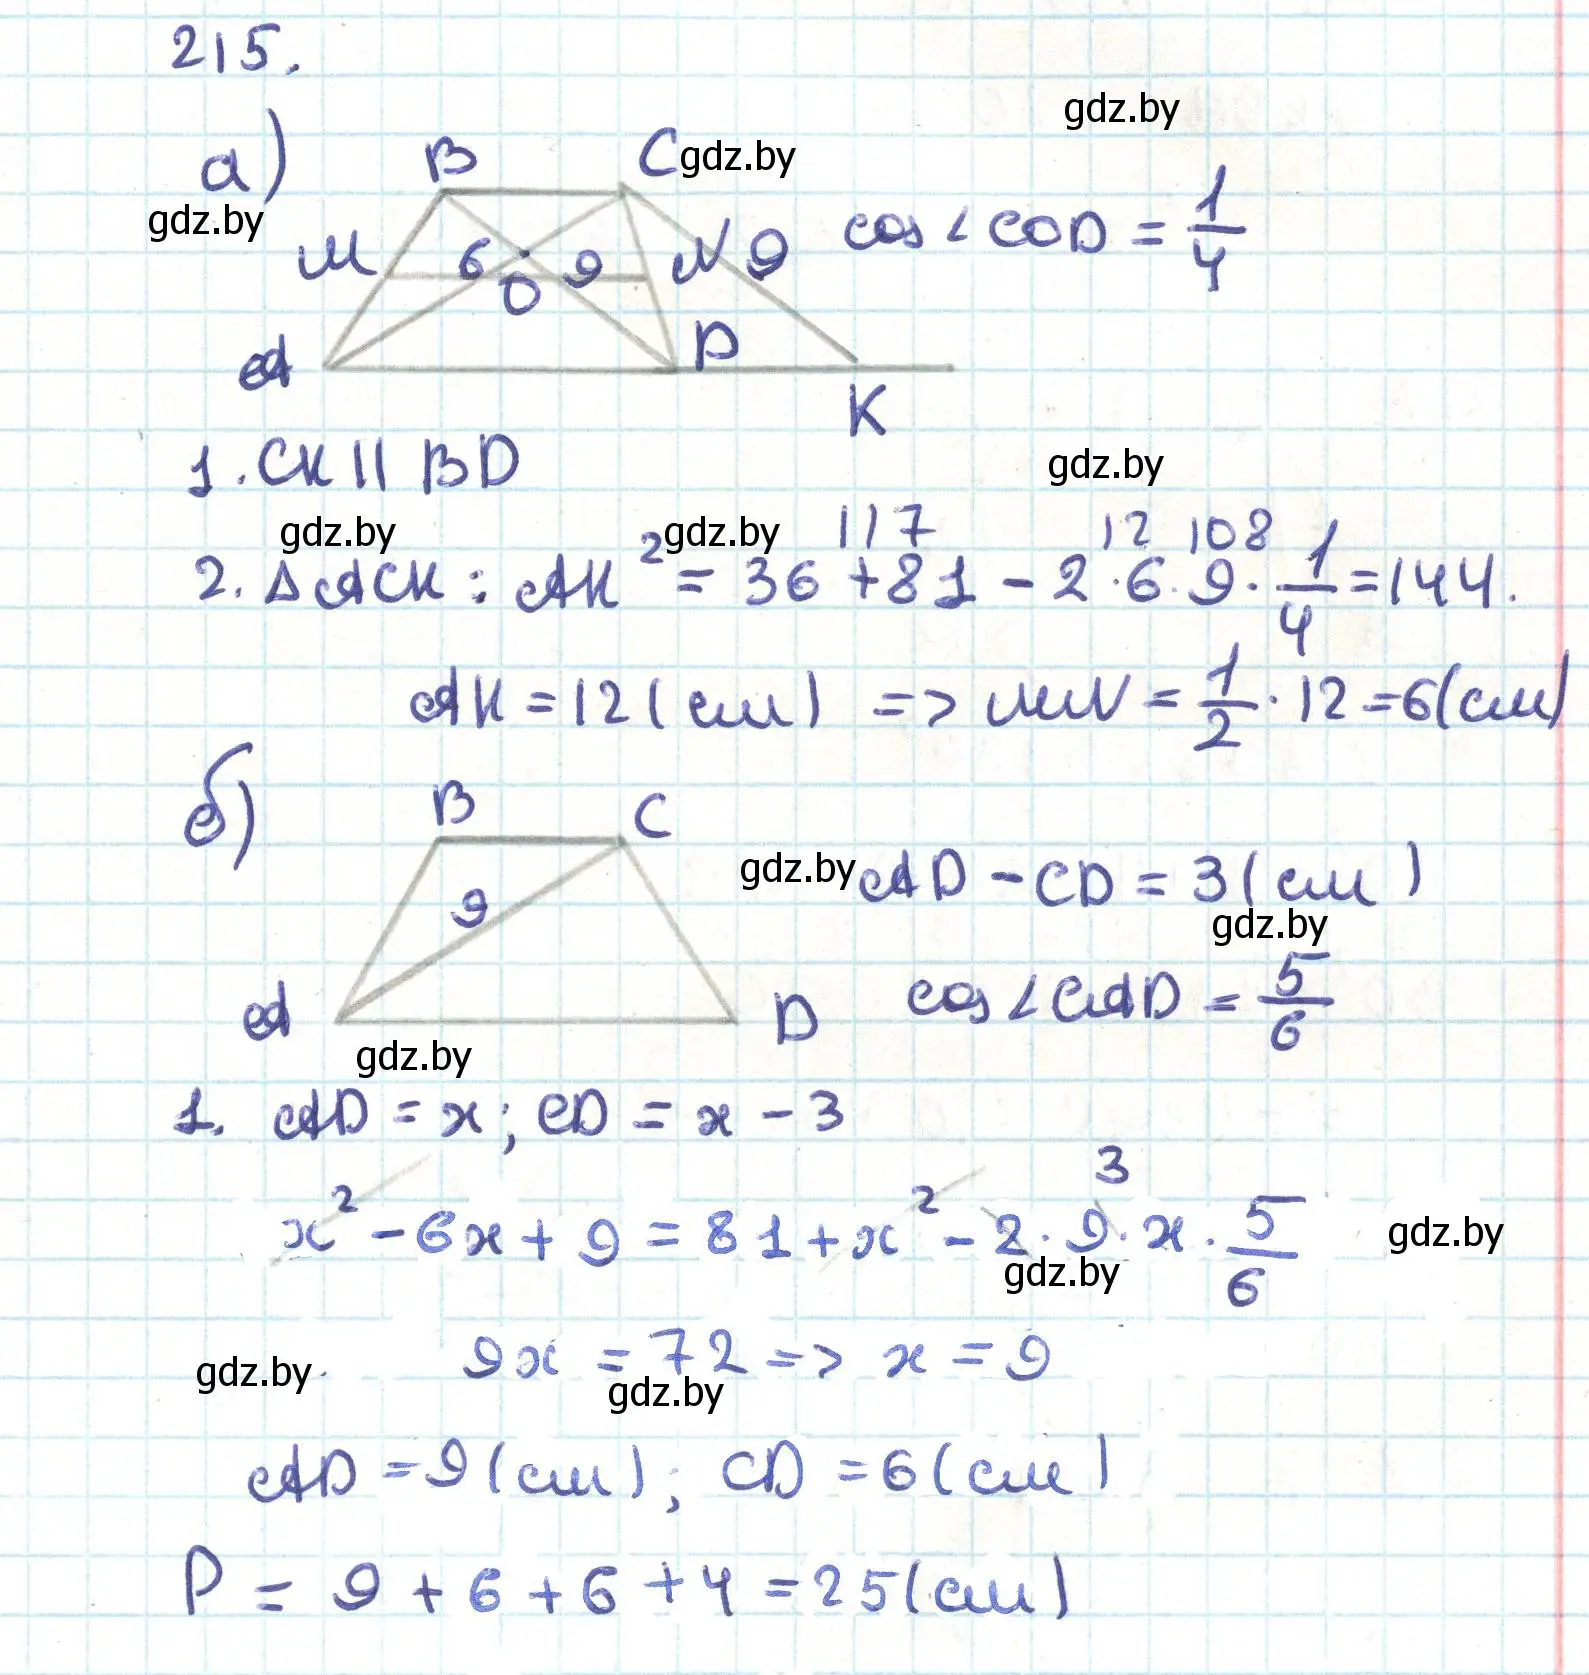 215.
gdz.by
а) B C gdz.by
gdz.by
M 6 O 9 N 9 cos∠COD = 1/4
A D
K
1. CK || BD gdz.by
gdz.by gdz.by 117 12 108
2. △ACK : AK² = 36 + 81 - 2 · 6 · 9 · 1/4 = 144.
AK = 12 (см) => MN = 1/2 · 12 = 6 (см)
б) B C
9 gdz.by AD - CD = 3 (см)
gdz.by
A D cos∠CAD = 5/6
gdz.by
1. AD = x; CD = x - 3
3
x² - 6x + 9 = 81 + x² - 2 · 9 · x · 5/6 gdz.by
gdz.by
gdz.by 9x = 72 => x = 9
gdz.by
AD = 9 (см); CD = 6 (см)
P = 9 + 6 + 6 + 4 = 25 (см)